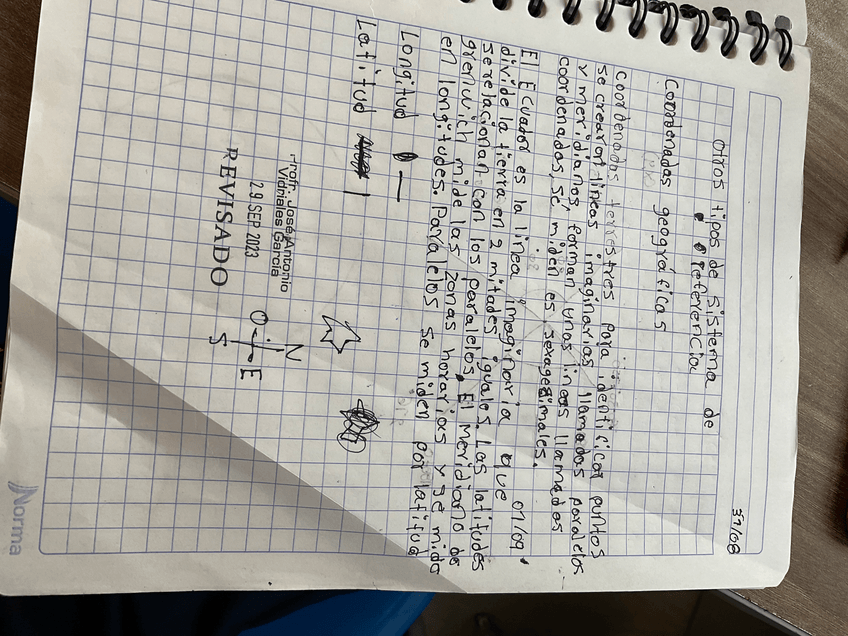 31/08
Otros tipos de sistema de
referencia
Coordenadas geográficas
Coordenadas terrestres para identificar puntos
se crearon lineas imaginarias llamadas paralelos
y meridianos, forman unas lineas llamadas
coordenadas, se miden es sexagesimales.
01/09.
El Ecuador es la linea imaginaria que
divide la tierra en 2 mitades iguales. Las latitudes
se relacionan con los paralelos. El meridiano de
grenwich mide las zonas horarias y se mide
en longitudes. Paralelos se miden por latitud
Longitud —
Latitud |
Profr. José Antonio
Vidriales García
29 SEP 2023
REVISADO
N
O E
S
Norma